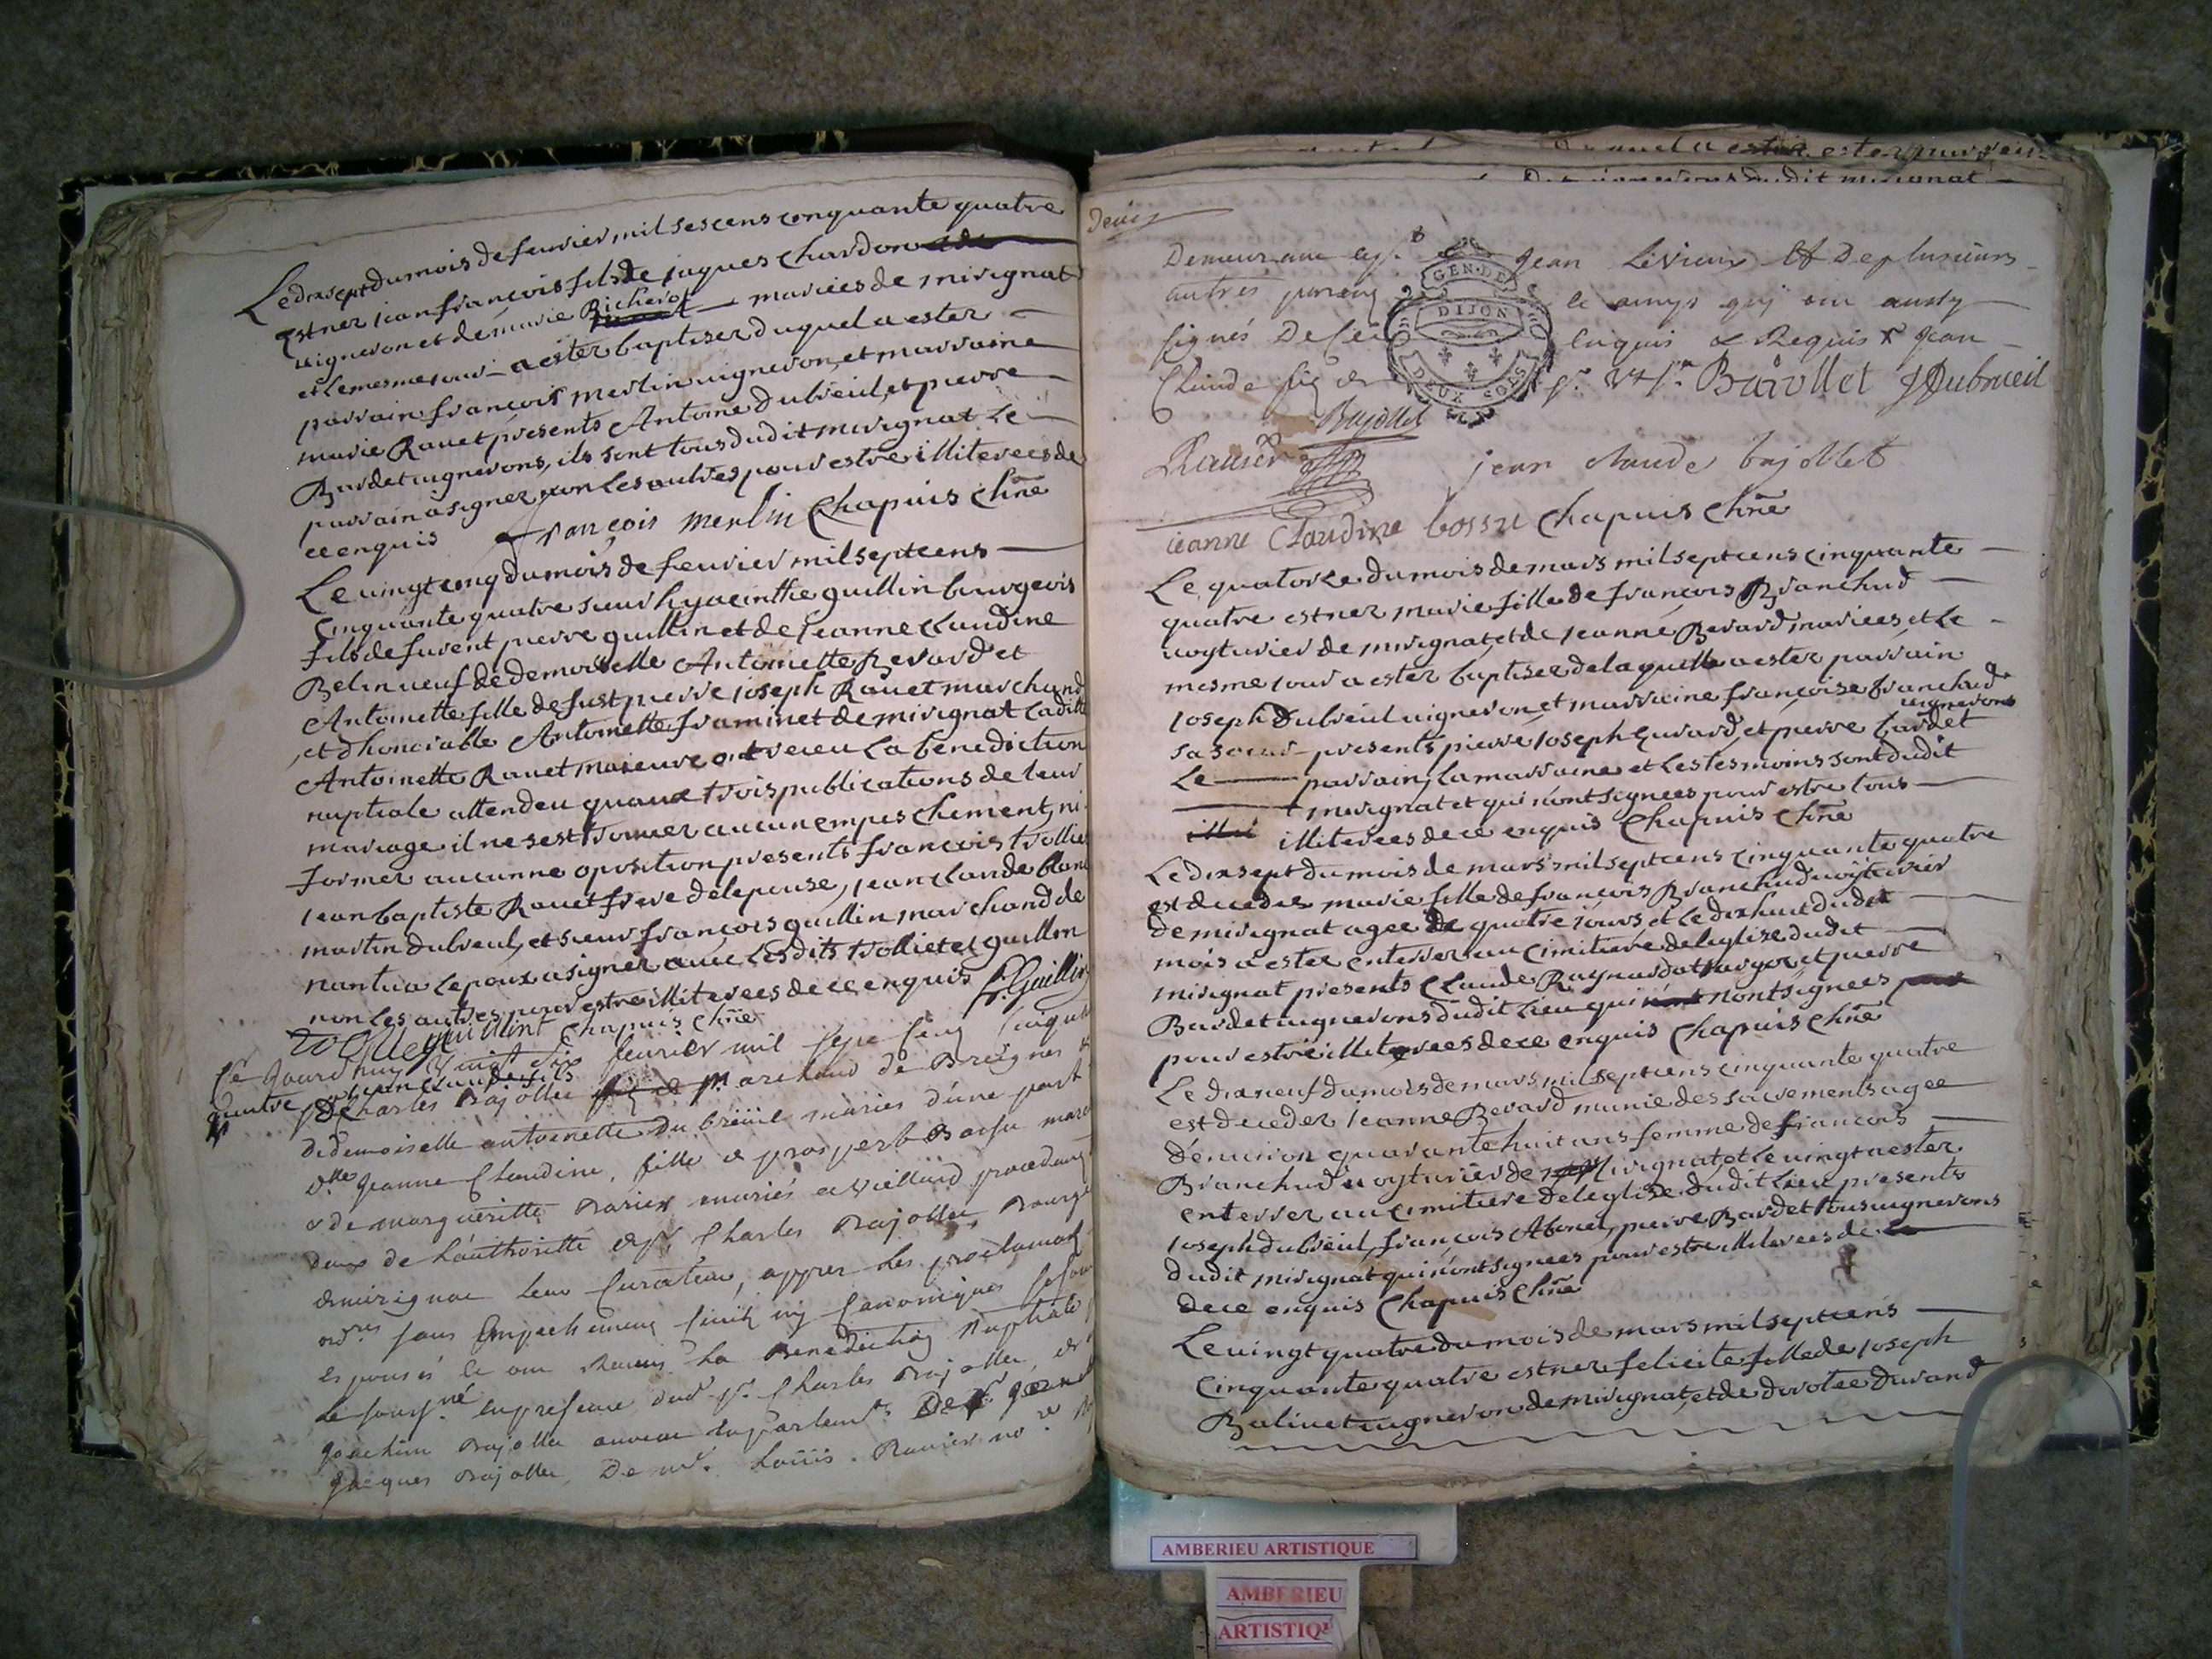 Le dixsept du mois de feurier mil sescens conquante quatre
est nez jean françois fils de jaques chardon
uigneron et de marie Richerot mariées de mirignat
et le mesme jour a ester baptisez duquel a ester
parrain françois merlin uigneron, et marraine
marie Rauet présents Antoine dubreüil, et pierre
Bardet uignerons, ils sont tous dudit mirignat Le
parrain a signez non les autres pour estre illiterees de
ce enquis françois merlin Chapuis Chne
Le uingt cinq du mois de feurier mil septcens
cinquante quatre sieur hyacinthe guillin bourgeois
fils de furent pierre guillin et de jeanne claudine
Belin ueuf de demoiselle Antoinette Revard et
Antoinette fille de fust pierre joseph Rauet marchand
et dhonorable Antoinette framinet de mirignat Laditte
Antoinette Rauet majeure ont receu La benediction
nuptiale attendeu quaux trois publications de leur
mariage il ne sest trouuer aucun empeschement, ni
former aucunne oposition presents françois trolliet
jean baptiste Rauet frere de lepouse, jean claude blanc
martin dubreul, et sieur françois guillin marchand de
nantua Lepoux a signer auec Lesdits trolliet et guillin
non les autres pour estre illiterees de ce enquis h. Guillin
trolliet guillint Chapuis Chne
Ce jourdhuy Vingt six feurier mil sept cens cinquante
quatre jean claude fils
de Charles Bajollet Marchand de Breignes &
de demoiselle antoinette Du breüil mariés d'une part
& dlle Jeanne Claudine, fille a prosper Bossu march
& de margueritte Darier mariés a Vieillard procedants
deux de Lauthoritté de sr Charles Bajollet Bourg
de mirignat leur Curateur, appres les proclamat
ordres sans Empechement Ciuil ny Canonique se sont
espousés et ont Receus La Benediction Nuptiale
Le soussigné En presence dud sr Charles Bajollet, de
Joachim Bajollet auocat En parlement De sr Jean
Jacques Bajollet, De Mr Loüis Rauier no.re
Deux
GEN. DE
DIJON
DEUX SOLS
Demeurant Jean Liviers Et De plusieurs
autres parens & amys quy ont aussy
signés De Ce Enquis & Requis Jean
Claude Baiollet JDubrueil
Bajollet
Rauier jean claude bajollet
jeanne Claudine bossu Chapuis Chne
Le quatorze du mois de mars mil septcens cinquante
quatre est nez marie fille de françois Branchud
uoyturier de mirignat, et de jeanne Berard mariees et Le
mesme jour a ester baptisee de laquelle a ester parrain
joseph dubreüil uigneron, et marraine françoise franchud
sa soeur presents pierre joseph Eurard, et pierre bardet uignerons
Le parrain, La marraine et Les tesmoins sont dudit
mirignat et qui n'ont signees pour estre tous
illiterees de ce enquis Chapuis Chne
Le dixsept du mois de mars mil septcens cinquante quatre
est decedee marie fille de françois Branchud uoyturier
de mirignat agee de quatre jours, et Le dixhuit dudit
mois a ester enterrer au cimitiere de leglise dudit
mirignat presents Claude Raynard et pierre
Bardet uignerons dudit lieu qui nont signees
pour estre illiterees de ce enquis Chapuis Chne
Le dixneuf du mois de mars mil septcens cinquante quatre
est deceder jeanne Berard munie des sacrements agee
d'enuiron quarante huit ans femme de françois
Branchud uoyturier de mirignat, et Le uingt a ester
enterrer au cimitiere de leglise dudit lieu presents
joseph dubreüil, françois Abouer, pierre Bardet tous uignerons
dudit mirignat qui n'ont signees pour estre illiterees de
de ce enquis Chapuis Chne
Le uingt quatre du mois de mars mil septcens
cinquante quatre est nez felicite fille de joseph
Baliuet uigneron de mirignat, et de dorotee durand
AMBERIEU ARTISTIQUE
AMBERIEU
ARTISTIQU